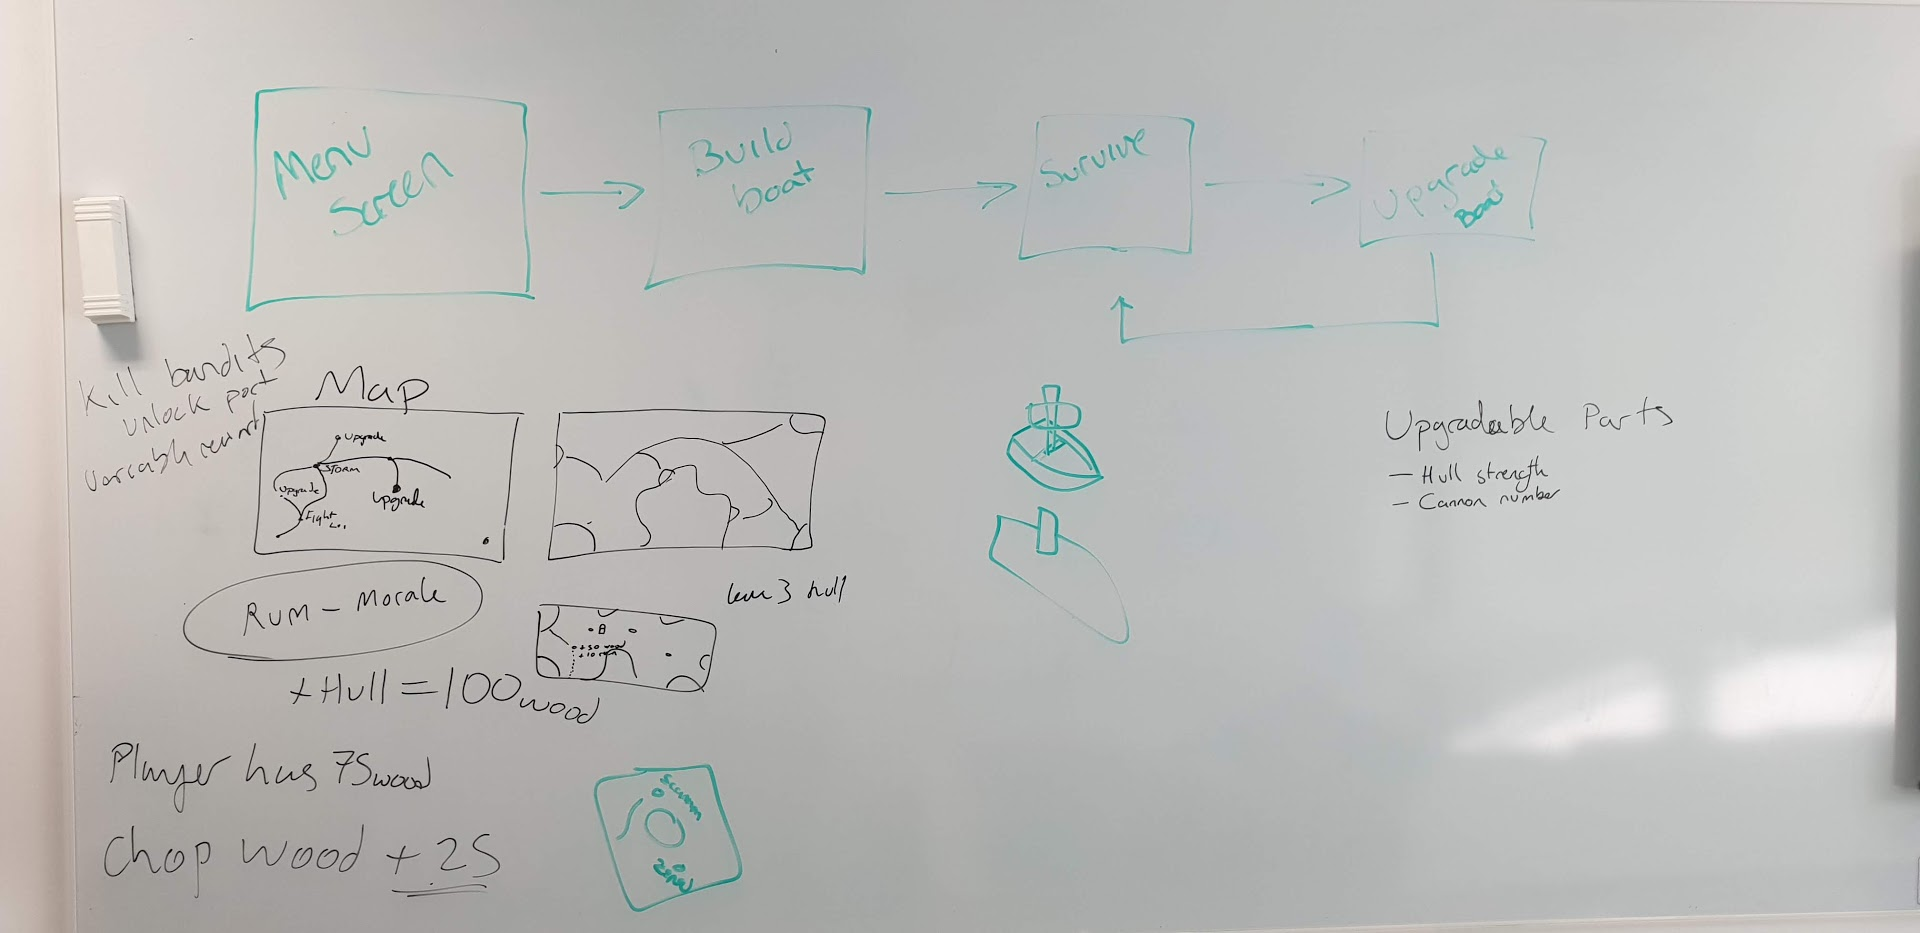 Menu
Screen
Build
boat
Survive
Upgrade
Boat
Kill bandits
unlock port
Map
Upgrade
STORM
Upgrade
Upgrade
Fight
Rum - Morale
3 hull
+ 50 wood
+ Hull = 100 wood
Player has 75 wood
Chop wood + 25
Upgradable Parts
- Hull strength
- Cannon number